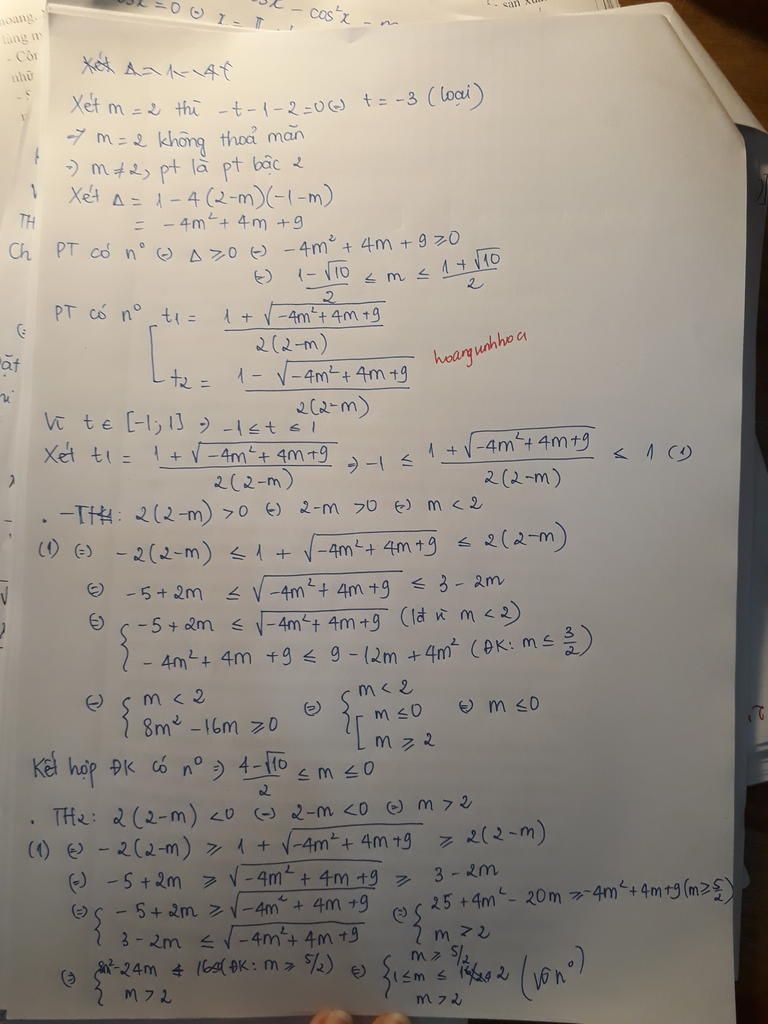 cosx = 0 (=)
- cos²x
Xét Δ = 1 - 4t
Xét m = 2 thì -t - 1 - 2 = 0 (=) t = -3 (loại)
=> m = 2 không thoả mãn
=> m ≠ 2, pt là pt bậc 2
Xét Δ = 1 - 4(2-m)(-1-m)
= -4m² + 4m + 9
PT có n° (=) Δ ≥ 0 (=) -4m² + 4m + 9 ≥ 0
(=) (1-√10)/2 ≤ m ≤ (1+√10)/2
PT có n° t1 = (1 + √(-4m²+4m+9))/(2(2-m))
t2 = (1 - √(-4m²+4m+9))/(2(2-m))
hoangunhhoa
Vì t ∈ [-1; 1] => -1 ≤ t ≤ 1
Xét t1 = (1 + √(-4m²+4m+9))/(2(2-m)) => -1 ≤ (1 + √(-4m²+4m+9))/(2(2-m)) ≤ 1 (1)
. TH1: 2(2-m) > 0 (=) 2-m > 0 (=) m < 2
(1) (=) -2(2-m) ≤ 1 + √(-4m²+4m+9) ≤ 2(2-m)
(=) -5 + 2m ≤ √(-4m²+4m+9) ≤ 3 - 2m
(=) { -5 + 2m ≤ √(-4m²+4m+9) (lđ vì m < 2)
-4m² + 4m + 9 ≤ 9 - 12m + 4m² (ĐK: m ≤ 3/2)
(=) { m < 2 (=) { m < 2
8m² - 16m ≥ 0 [ m ≤ 0 (=) m ≤ 0
m ≥ 2
Kết hợp ĐK có n° => (4-√10)/2 ≤ m ≤ 0
. TH2: 2(2-m) < 0 (=) 2-m < 0 (=) m > 2
(1) (=) -2(2-m) ≥ 1 + √(-4m²+4m+9) ≥ 2(2-m)
(=) -5 + 2m ≥ √(-4m²+4m+9) ≥ 3 - 2m
(=) { -5 + 2m ≥ √(-4m²+4m+9) (=) { 25 + 4m² - 20m ≥ -4m² + 4m + 9 (m ≥ 5/2)
3 - 2m ≤ √(-4m²+4m+9) m > 2
(=) { 8m² - 24m (ĐK: m ≥ 5/2) (=) { m ≥ 5/2
1 ≤ m ≤ 2 (Vô n°)
m > 2 m > 2